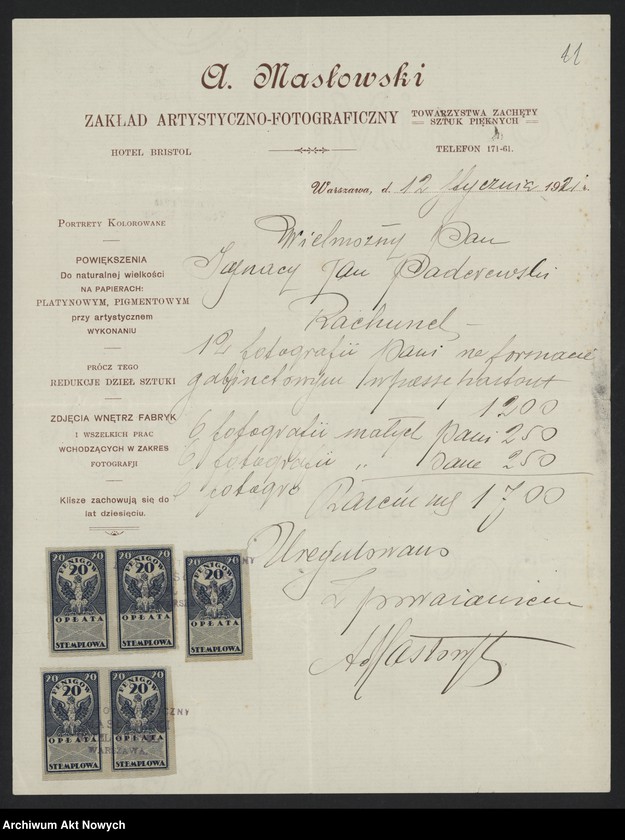 11
A. Masłowski
ZAKŁAD ARTYSTYCZNO-FOTOGRAFICZNY
TOWARZYSTWA ZACHĘTY
SZTUK PIĘKNYCH
HOTEL BRISTOL
TELEFON 171-61.
Warszawa, d. 12 stycznia 1921 r.
PORTRETY KOLOROWANE
POWIĘKSZENIA
Do naturalnej wielkości
NA PAPIERACH:
PLATYNOWYM, PIGMENTOWYM
przy artystycznem
WYKONANIU
PRÓCZ TEGO
REDUKCJE DZIEŁ SZTUKI
ZDJĘCIA WNĘTRZ FABRYK
I WSZELKICH PRAC
WCHODZĄCYCH W ZAKRES
FOTOGRAFJI
Klisze zachowują się do
lat dziesięciu.
Wielmożny Pan
Ignacy Jan Paderewski
Rachunek
12 fotografii Pani na formacie
gabinetowym
1200
6 fotografii małych Pani 250
6 fotografii „ 250
6 fotogra
Razem 1700
Uregulowano
Z poważaniem
A Masłowski
20 20
FENIGÓW
20
OPŁATA
STEMPLOWA
20 20
FENIGÓW
20
OPŁATA
STEMPLOWA
20 20
FENIGÓW
20
OPŁATA
STEMPLOWA
20 20
FENIGÓW
20
OPŁATA
STEMPLOWA
20 20
FENIGÓW
20
OPŁATA
STEMPLOWA
WARSZAWA
Archiwum Akt Nowych